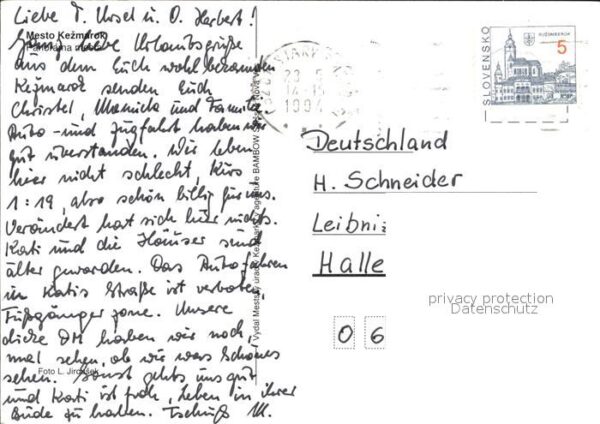 Liebe T. Ursel u. O. Herbert!
Mesto Kežmarok
Panoráma mesta
Ganz liebe Urlaubsgrüße
aus dem Euch wohl bekannten
Kežmarok senden Euch
Christel, und Familie.
Auto- und Zugfahrt haben wir
gut überstanden. Wir leben
hier nicht schlecht, Kurs
1:19, also schön billig für uns.
Verändert hat sich hier nichts.
Kati und die Häuser sind
älter geworden. Das Autofahren
in Katis Straße ist verboten,
Fußgängerzone. Unsere
dicke DM haben wir noch,
mal sehen, ob wir was Schönes
sehen. Sonst gehts uns gut
und Kati ist froh, Leben in ihrer
Bude zu haben. Tschüß M.
Foto L. Jiroušek
Vydal Mestský úrad Kežmarok v agentúre BAMBOW
23. 5.
1994
SLOVENSKO
RUŽOMBEROK
5
Deutschland
H. Schneider
Leibniz
Halle
06
privacy protection
Datenschutz